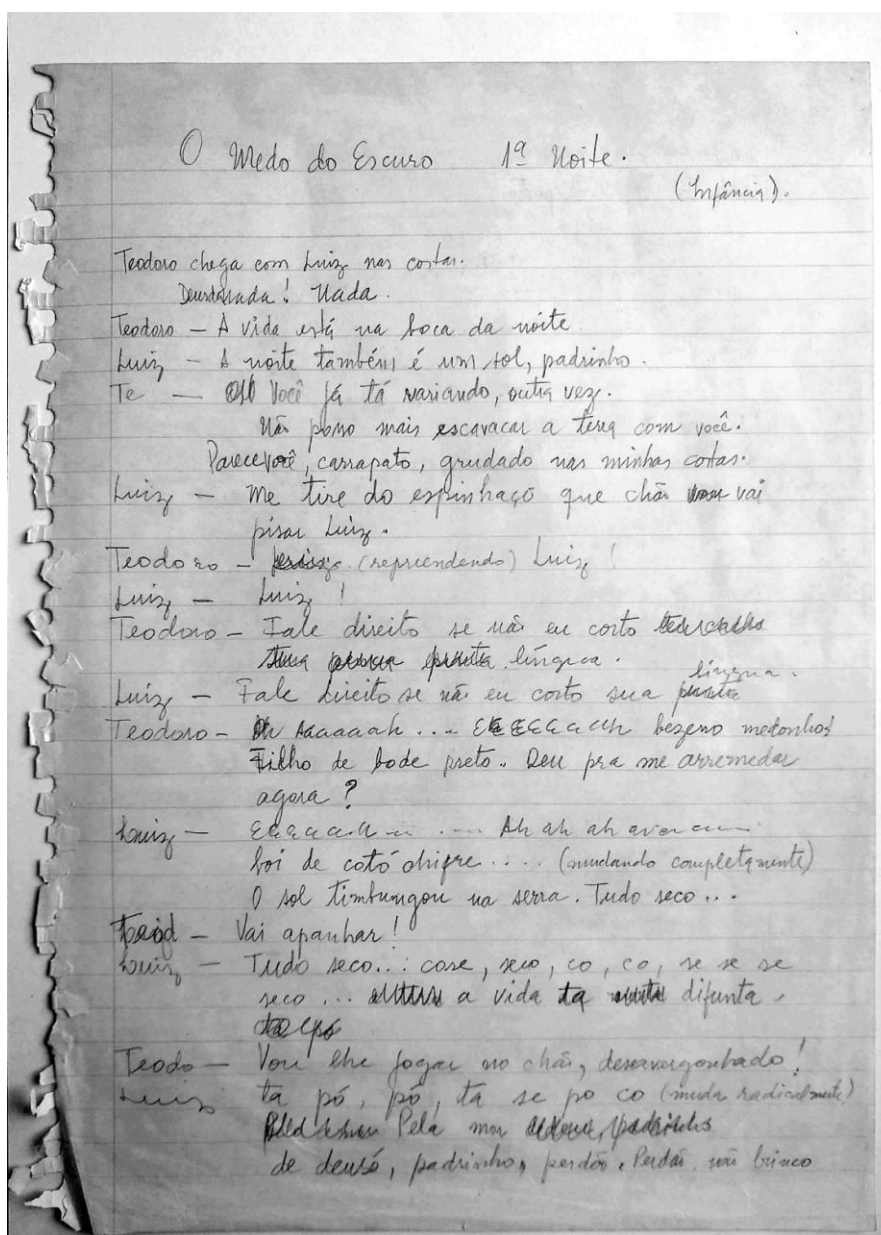 O Medo do Escuro 1ª Noite.
(Infância).
Teodoro chega com Luiz nas costas.
Nada.
Teodoro — A vida está na boca da noite
Luiz — A noite também é um sol, padrinho.
Te — Você já tá variando, outra vez.
Não posso mais escavacar a terra com você.
Parece você, carrapato, grudado nas minhas costas.
Luiz — Me tire do espinhaço que chão vai
pisar Luiz.
Teodoro — (repreendendo) Luiz!
Luiz — Luiz!
Teodoro — Fale direito se não eu corto
língua.
Luiz — Fale direito se não eu corto sua língua.
Teodoro — Aaaaaah ... bezerro medonho!
Filho de bode preto. Deu pra me arremedar
agora?
Luiz — .... Ah ah ah
boi de cotó chifre .... (mudando completamente)
O sol timbungou na serra. Tudo seco ...
— Vai apanhar!
Luiz — Tudo seco... cose, seco, co, co, se se se
seco ... a vida ta difunta.
Teodo — Vou lhe jogar no chão, desavergonhado!
Luiz ta pó, pó, ta se po co (muda radicalmente)
Pela mor
de deusó, padrinho, perdão. Perdão, não brinco